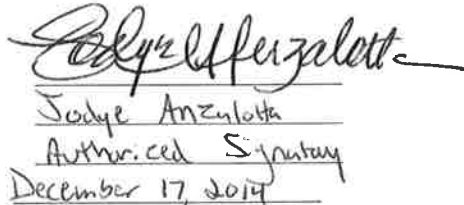 Jodye Anzalotta
Jodye Anzalotta
Authorized Signatory
December 17, 2014